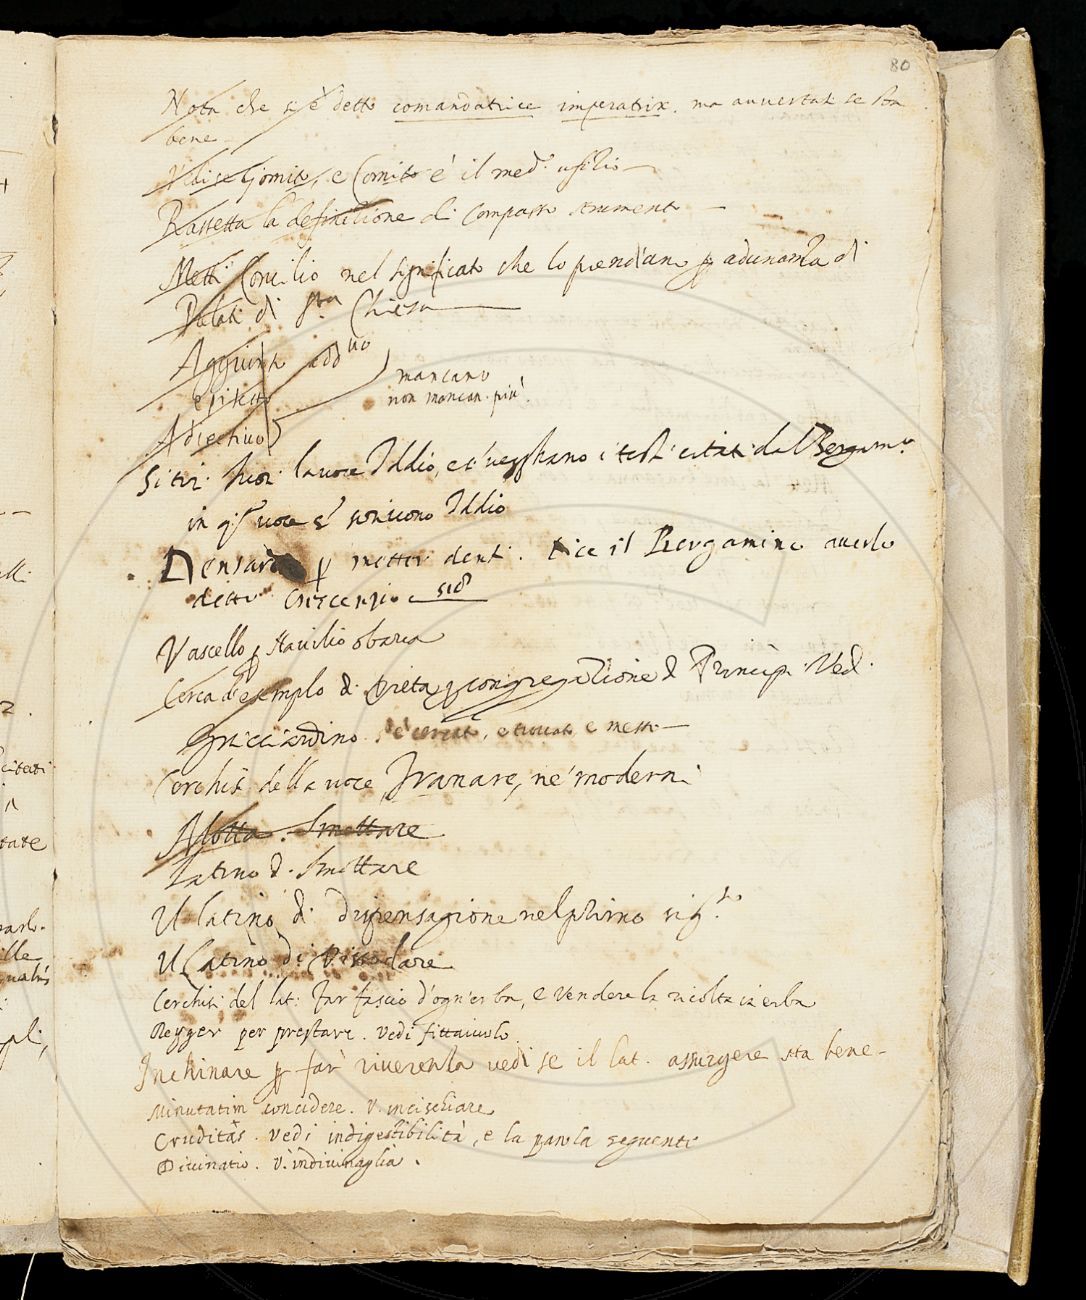 80
Nota che s'è detto comandatrice imperatrix. ma avvertasi se sta
bene
Vedi se Gomito, e Comito è il med.º ufitio
Rassetta la definitione di Compasso strumento
Metti Concilio nel significato che lo prendiano p adunanza di
Prelati di sta Chiesa
Aggiunto add.vo
epiteto
mancano
non mancan più
Adiettivo
Si tiri fuor la voce Iddio, e si vegghano i testi citati dal Bergam.º
in qsta voce e si scrivono Iddio
Densare p metter denti. dice il Bergamino averlo
detto Crescenzio
Vascello p Navilio o barca
Cerca d'esemplo di Dieta p congregazione di Principi. Ved.
Guicciardino s'è cercato, e trovato e messo
Cerchisi della voce Granare, ne' moderni
Motta. Smottare
Latino di Smottare
Il latino di dispensagione nel primo sig.to
Il Latino di
Cerchisi del lat: Far fascio d'ogn'erba, e Vendere la ricolta in erba
Regger per prestare. Vedi fittaiuolo
Inchinare p far riverenza vedi se il lat. assurgere sta bene
Minutatim concidere. V. incischiare
Crudità. Vedi indigestibilità, e la parola seguente
Divinatio. V. indivinaglia.